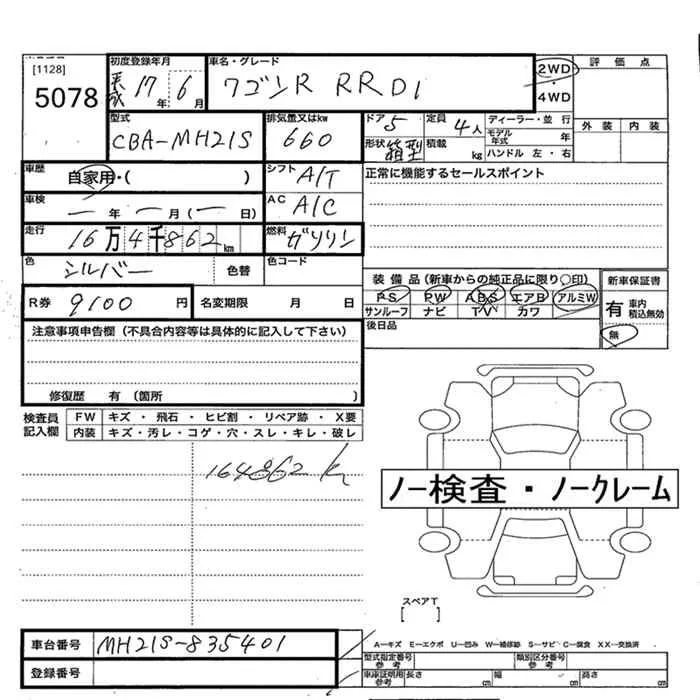 [1128]
5078
初度登録年月
平成 17年 6月
車名・グレード
ワゴンR RR DI
2WD
・
4WD
評価点
外装 内装
型式
CBA-MH21S
排気量又はkw
660
ドア 5
定員 4人
ディーラー・並行
モデル年式 年
ハンドル 左・右
形状 箱型
積載 kg
車歴
自家用・( )
シフト
A/T
正常に機能するセールスポイント
車検
ー年 ー月(ー日)
AC
A/C
走行
16万4千862km
燃料
ガソリン
色
シルバー
色替
色コード
装備品(新車からの純正品に限り○印)
新車保証書
PS PW ABS エアB アルミW
サンルーフ ナビ TV カワ
有 車内積込無効
無
後日品
R券 9100円
名変期限 月 日
注意事項申告欄(不具合内容等は具体的に記入して下さい)
修復歴 有(箇所 )
検査員記入欄
FW キズ・飛石・ヒビ割・リペア跡・X要
内装 キズ・汚レ・コゲ・穴・スレ・キレ・破レ
164862 k
ノー検査・ノークレーム
スペアT
[ ]
車台番号 MH21S-835401
登録番号
A－キズ E－エクボ U－凹み W－補修跡 S－サビ C－腐食 XX－交換済
型式指定番号 参考
類別区分番号 参考
車庫証明用 参考
長さ cm 幅 cm 高さ cm